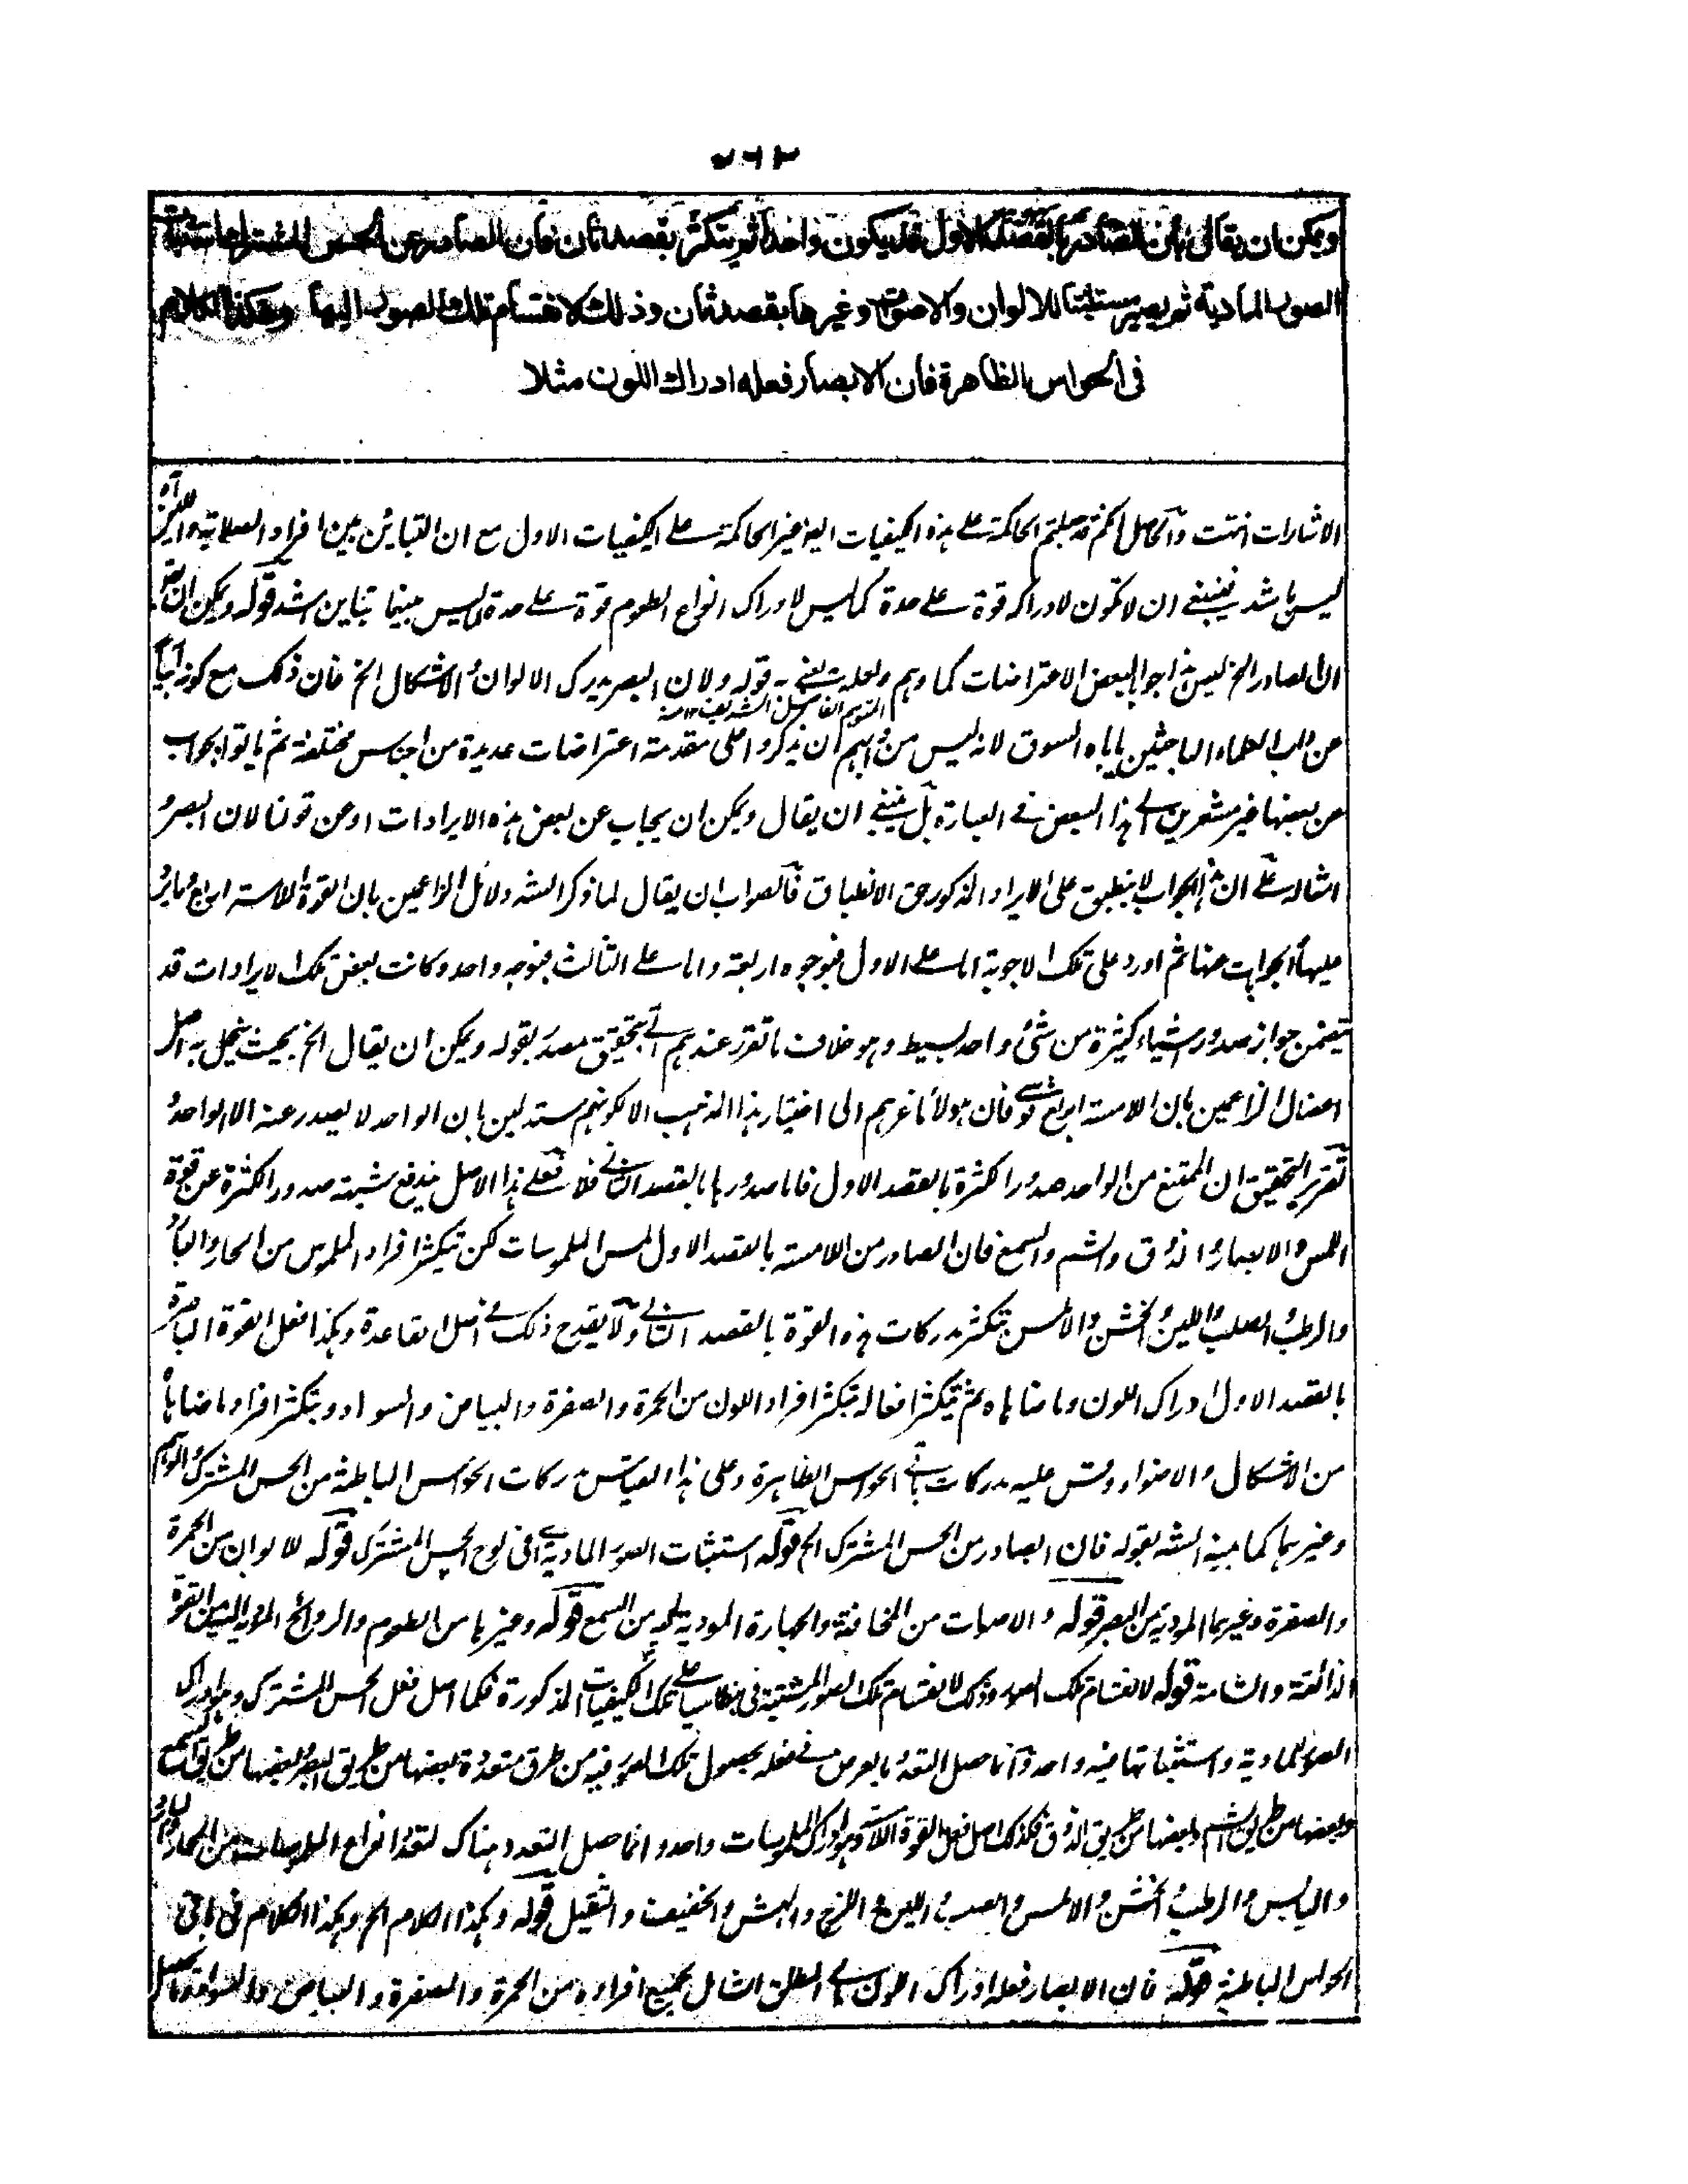 ويمكن ان يقال بأن الصادر بالقصد الاول قد يكون واحدا ثم يتكثر بقصد ثان فان الصادر عن الحس المشترك استثبات
الصور المادية ثم يصير مستثبتا للالوان والاصوات وغيرها بقصد ثان وذلك لانقسام تلك الصور اليها وهكذا الكلام
فى الحواس الظاهرة فان الابصار فعله ادراك اللون مثلا
الاشارات انتهت والحاصل انكم قد جعلتم الحاكمة على هذه الكيفيات الغير الحاكمة على الكيفيات الاول مع ان التباين بين افراد الصلابة واللين
ليس باشد فينبغى ان لا تكون لادراكه قوة على حدة كما ليس لادراك انواع الطعوم قوة على حدة اذ ليس بينها تباين اشد قوله ويمكن ان يقال
ان الصادر الخ ليس هذا جوابا لبعض الاعتراضات كما وهم ولعله يعنى به قوله ولان البصر يدرك الالوان والاشكال الخ فان ذلك مع كونه آبيا
المتوهم الفاضل السيد الشريف ١٢ منه
عن داب العلماء الباحثين ياباه السوق لانه ليس من دابهم ان يذكروا على مقدمة اعتراضات عديدة من اجناس مختلفة ثم ياتوا بجواب
عن بعضها غير مشعرين الى هذا البعض فى العبارة بل ينبغى ان يقال ويمكن ان يجاب عن بعض هذه الايرادات او عن قولنا لان البصر و
امثاله على ان هذا الجواب لا ينطبق على الايراد المذكور حق الانطباق فالصواب ان يقال لما ذكر الشه دلائل الزاعمين بان القوة اللامسة اربع وما يرد
عليها اجوابات عنها ثم اورد على تلك الاجوبة اما على الاول فبوجوه اربعة واما على الثالث فبوجه واحد وكانت بعض تلك الايرادات قد
يتضمن جواز صدور اشياء كثيرة من شئ واحد بسيط وهو خلاف ما تقرر عندهم اتى بتحقيق مصدر بقوله ويمكن ان يقال الخ بحيث ينحل به اصل
اعضال الزاعمين بان اللامسة اربع قوى فان هولاء ما غرهم الى اختيار هذا المذهب الا كونهم مستدلين بان الواحد لا يصدر عنه الا الواحد و
تقرير التحقيق ان الممتنع من الواحد صدور الكثرة بالقصد الاول فاما صدورها بالقصد الثانى فلا فعلى هذا الاصل يندفع شبهة صدور الكثرة عن قوة
اللمس والابصار والذوق والشم والسمع فان الصادر من اللامسة بالقصد الاول لمس الملموسات لكن تيكثر افراد الملموس من الحار والبارد
والرطب والصلب واللين والخشن والاملس يتكثر مدركات هذه القوة بالقصد الثانى ولا يقدح ذلك فى اصل القاعدة وهكذا فعل القوة الباصرة
بالقصد الاول ادراك اللون وما ضاهاه ثم يتكثر افعاله بتكثر افراد اللون من الحمرة والصفرة والبياض والسواد وبتكثر افراد ما ضاهاه
من الاشكال والاضواء وقس عليه مدركات باقى الحواس الظاهرة وعلى هذا القياس مدركات الحواس الباطنة من الحس المشترك والوهم
وغيرهما كما بينه الشه بقوله فان الصادر من الحس المشترك الخ قوله استثبات الصور المادية اى فى لوح الحس المشترك قوله للالوان من الحمرة
والصفرة وغيرهما المودية من البصر قوله والاصوات من المخافتة والجهارة المودية اليه من السمع قوله وغيرها من الطعوم والروائح المودية اليه من القوة
الذائقة والشامة قوله لانقسام تلك الصور وذلك لانقسام تلك الصور المستثبتة فى تلك الكيفيات المذكورة فكما اصل فعل الحس المشترك وهو ادراك
الصور المادية واستثباتها فيه واحد وانما حصل التعدد بالعرض فى فعله بحصول تلك الصور فيه من طرق متعددة بعضها من طريق البصر وبعضها من طريق السمع
وبعضها من طريق الشم وبعضها من طريق الذوق فكذلك اصل فعل القوة اللامسة وهو ادراك الملموسات واحد وانما حصل التعدد هناك لتعدد انواع الملموسات من الحار والبارد
واليابس والرطب والخشن والاملس والصلب واللين واللزج والهش والخفيف والثقيل قوله وهكذا الكلام الخ وهكذا الكلام فى باقى
الحواس الباطنة قوله فان الابصار فعله ادراك اللون اى المطلق الشامل بجميع افراده من الحمرة والصفرة والبياض والسواد